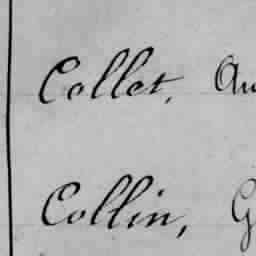 Collet, Au
Collin, G